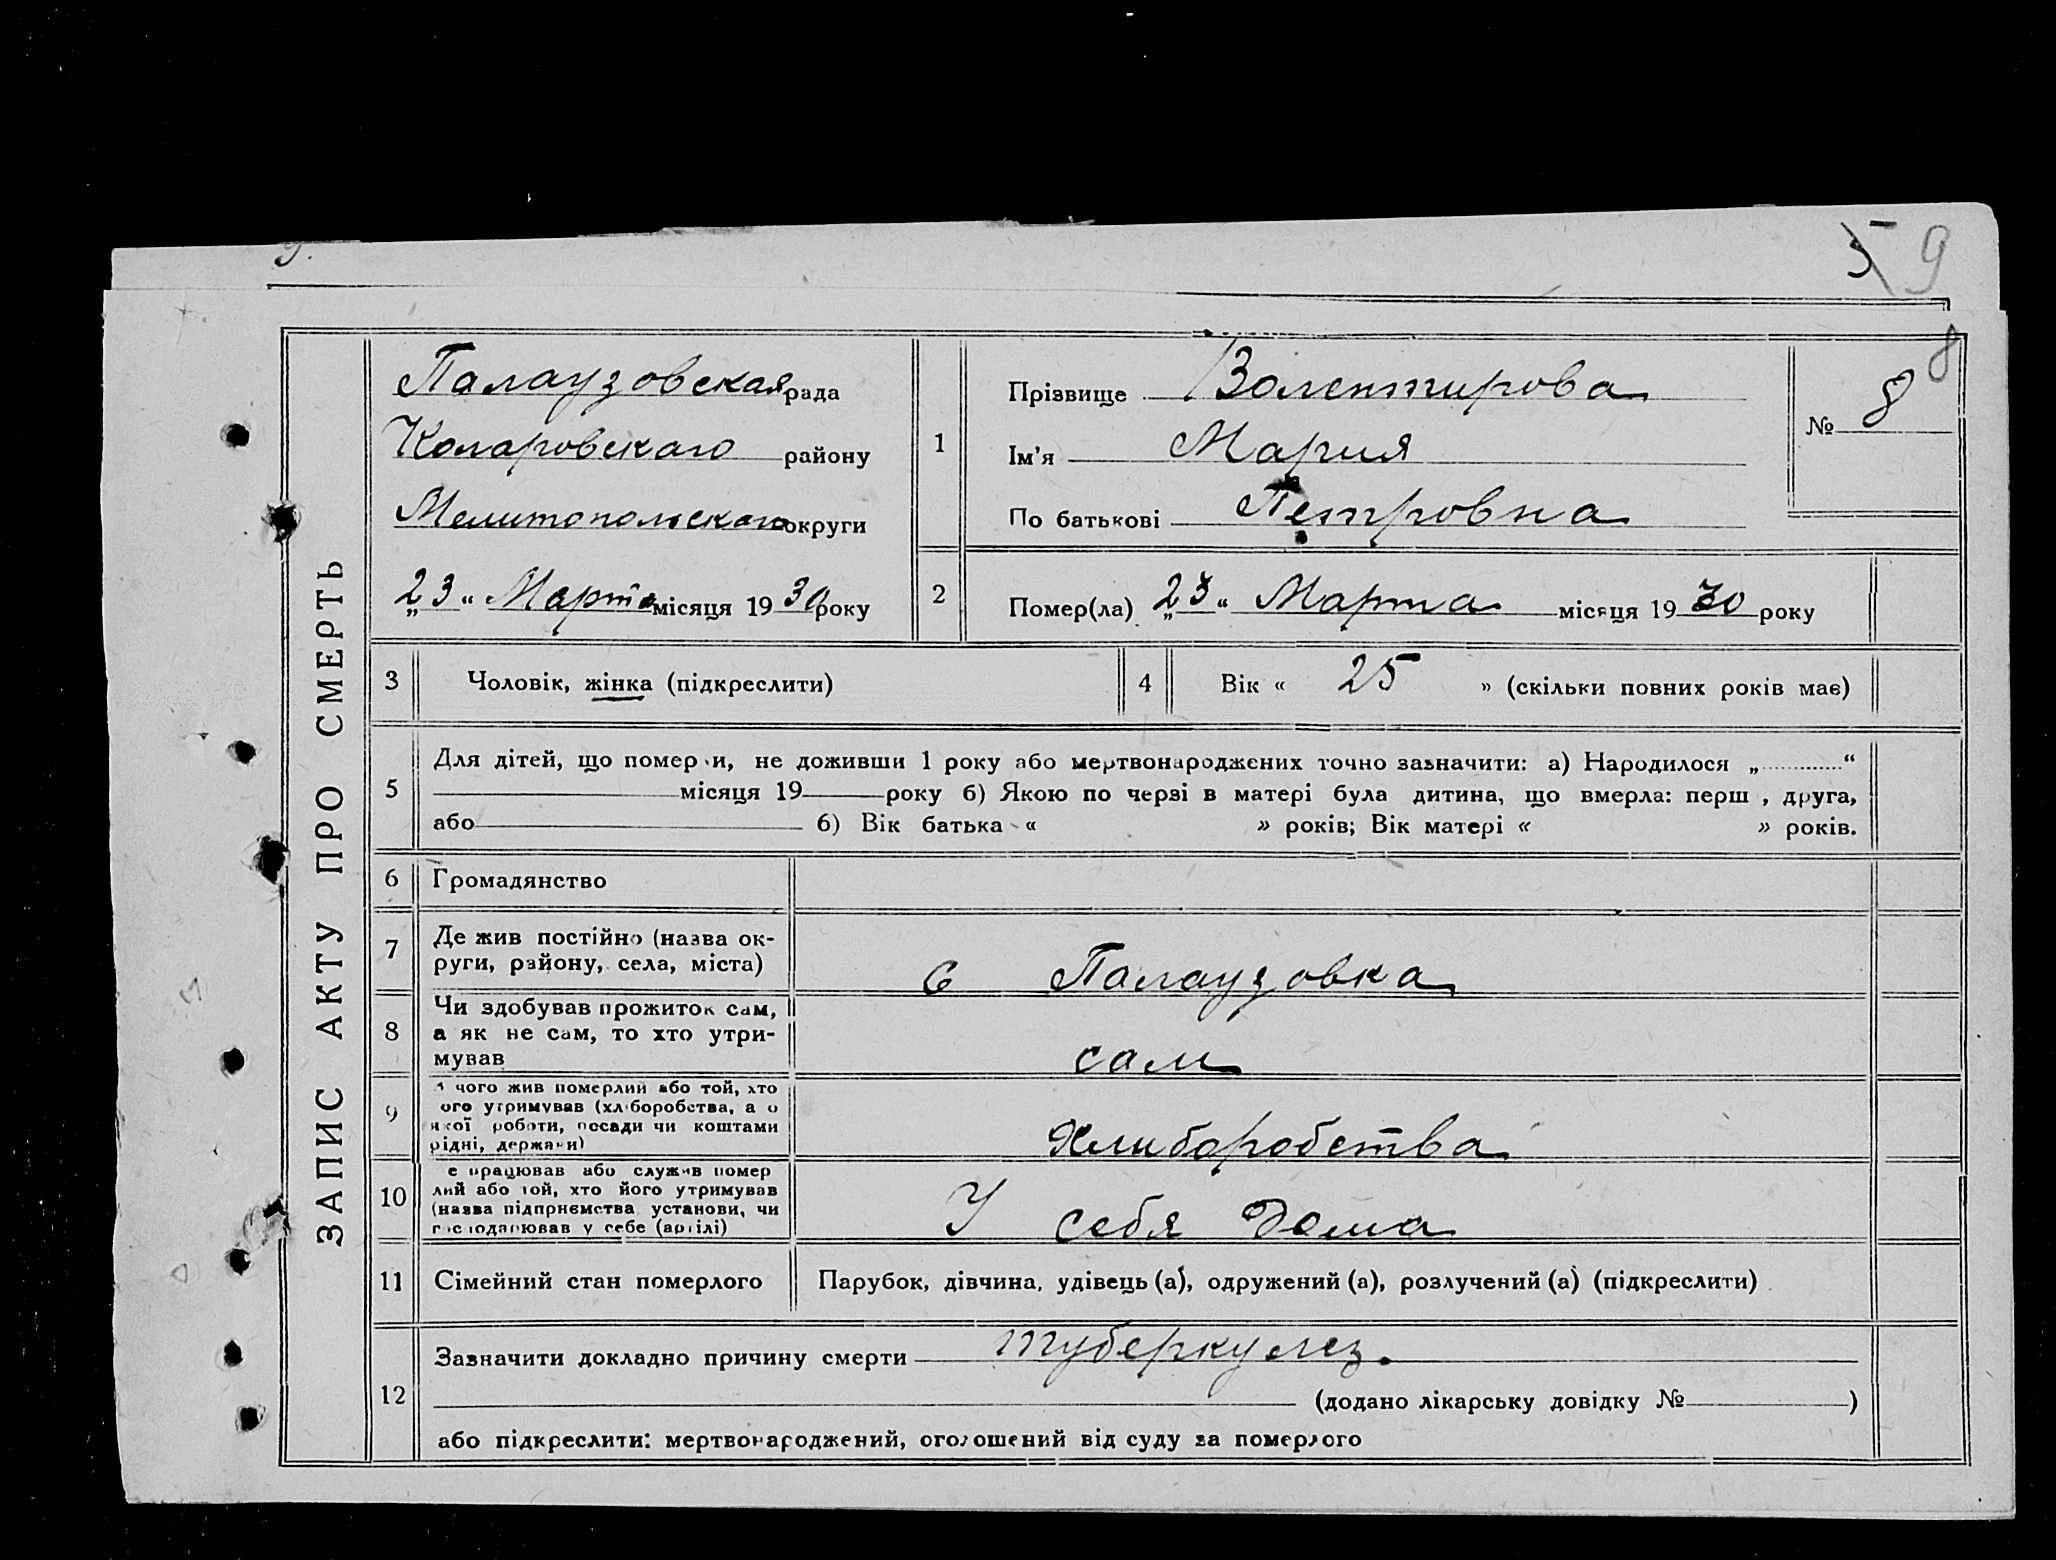 5 9
8
ЗАПИС АКТУ ПРО СМЕРТЬ
Палаузовская рада
Коларовскаго району
Мелитопольскаго округи
„23“ Марта місяця 1930 року
1
Прізвище Волентирова
Ім'я Мария
По батькові Петровна
№ 8
2
Помер(ла) „23“ Марта місяця 1930 року
3 Чоловік, жінка (підкреслити)
4 Вік « 25 » (скільки повних років має)
5
Для дітей, що померли, не доживши 1 року або мертвонароджених точно зазначити: а) Народилося „ “
місяця 19 року б) Якою по черзі в матері була дитина, що вмерла: перш , друга,
або б) Вік батька « » років; Вік матері « » років.
6 Громадянство
7
Де жив постійно (назва ок-
руги, району, села, міста)
с Палаузовка
8
Чи здобував прожиток сам,
а як не сам, то хто утри-
мував
сам
9
чого жив померлий або той, хто
ого утримував (хліборобства, а о
якої роботи, посади чи коштами
рідні, держави)
Хлиборобства
10
е працював або служив помер
лий або той, хто його утримував
(назва підприємства установи, чи
господарював у себе (артілі)
У себя дома
11 Сімейний стан померлого
Парубок, дівчина, удівець (а), одружений (а), розлучений (а) (підкреслити)
12
Зазначити докладно причину смерти туберкулез.
(додано лікарську довідку № )
або підкреслити: мертвонароджений, оголошений від суду за померлого